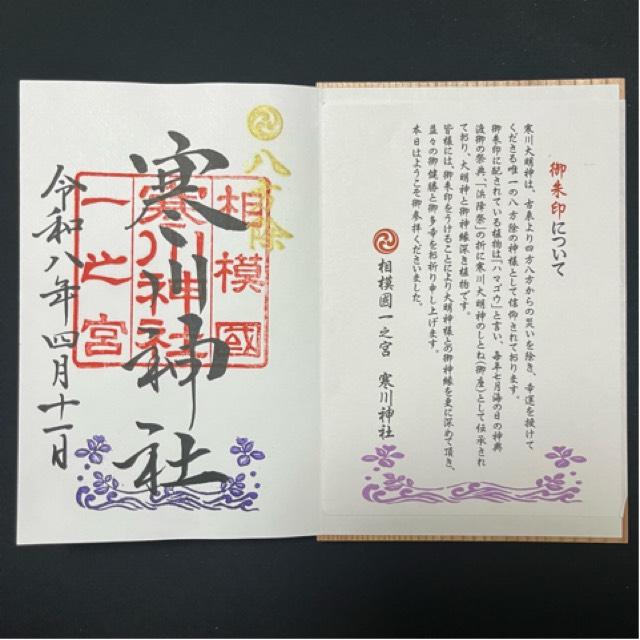 八方除
相模國
寒川神社
一之宮
寒川神社
令和八年四月十一日
御朱印について
寒川大明神は、古来より四方八方からの災いを除き、幸運を授けて
くださる唯一の八方除の神様として信仰されております。
御朱印に配されている植物は「ハマゴウ」と言い、毎年七月海の日の神輿
渡御の祭典、「浜降祭」の折に寒川大明神のしとね(御座)として伝承され
ており、大明神と御神縁深き植物です。
皆様には、御朱印をうけることにより大明神様との御神縁を更に深めて頂き、
益々の御健勝と御多幸をお祈り申し上げます。
本日はようこそ御参拝くださいました。
相模國一之宮 寒川神社